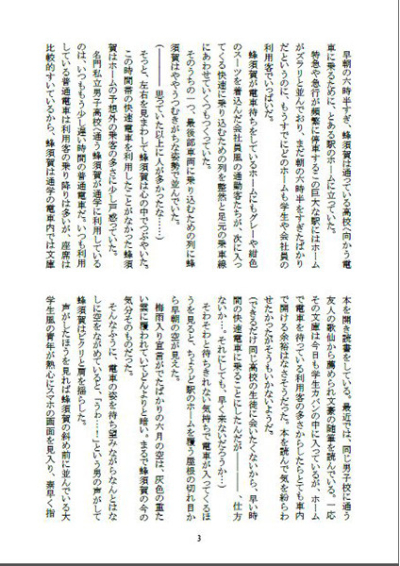 早朝の六時すぎ、蜂須賀は通っている高校へ向かう電
車に乗るために、とある駅のホームに立っていた。
特急や急行が頻繁に停車するこの巨大な駅にはホーム
がズラリと並んでおり、まだ朝の六時をすぎたばかり
だというのに、もうすでにどのホームも学生や会社員の
利用客でいっぱいだ。
蜂須賀が電車待ちをしているホームにもグレーや紺色
のスーツを着込んだ会社員風の通勤客たちが、次に入っ
てくる快速に乗り込むための列を整然と足元の乗車線
にあわせていくつもつくっていた。
そのうちの一つ、最後部車両に乗り込むための列に蜂
須賀はややうつむきがちな姿勢で並んでいた。
(―――思っていた以上に人が多かったな……)
そっと、左右を見まわして蜂須賀は心の中でつぶやいた。
この時間帯の快速電車を利用したことがなかった蜂須
賀はホームの予想外の客の多さに少し戸惑っていた。
名門私立男子高校へ通う蜂須賀が通学に利用している
のは、いつももう少し遅い時間の普通電車だ。いつも利用
している普通電車は利用客の乗り降りは多いが、座席は
比較的すいているから、蜂須賀は通学の電車内では文庫
本を開き読書をしている。最近では、同じ男子校に通う
友人の歌仙から薦められた文豪の随筆を読んでいる。一応
その文庫は今日も学生カバンの中に入っているが、ホーム
で電車を待っている利用客の多さからしたらとても車内
で開ける余裕はなさそうだった。本を読んで気を紛らわ
せたかったがそうもいかないようだ。
(できるだけ同じ高校の生徒に会いたくないから、早い時
間の快速電車に乗ることにしたんだが―――、仕方
ないか…。それにしても、早く来ないだろうか…)
そわそわと待ちきれない気持ちで電車が入ってくるほ
うを見ると、ちょうど駅のホームを覆う屋根の切れ目か
ら早朝の空が見えた。
梅雨入り宣言がでたばかりの六月の空は、灰色の重た
い雲に覆われていてどんよりと暗い。まるで蜂須賀の今の
気分そのものだった。
そんなふうに、電車の姿を待ち望みながらなんとはな
しに空をながめていると、「うわ…!」という男の声がして
蜂須賀はビクリと肩を揺らした。
声がしたほうを見れば蜂須賀の斜め前に並んでいる大
学生風の青年が熱心にスマホの画面を見入り、素早く指
3